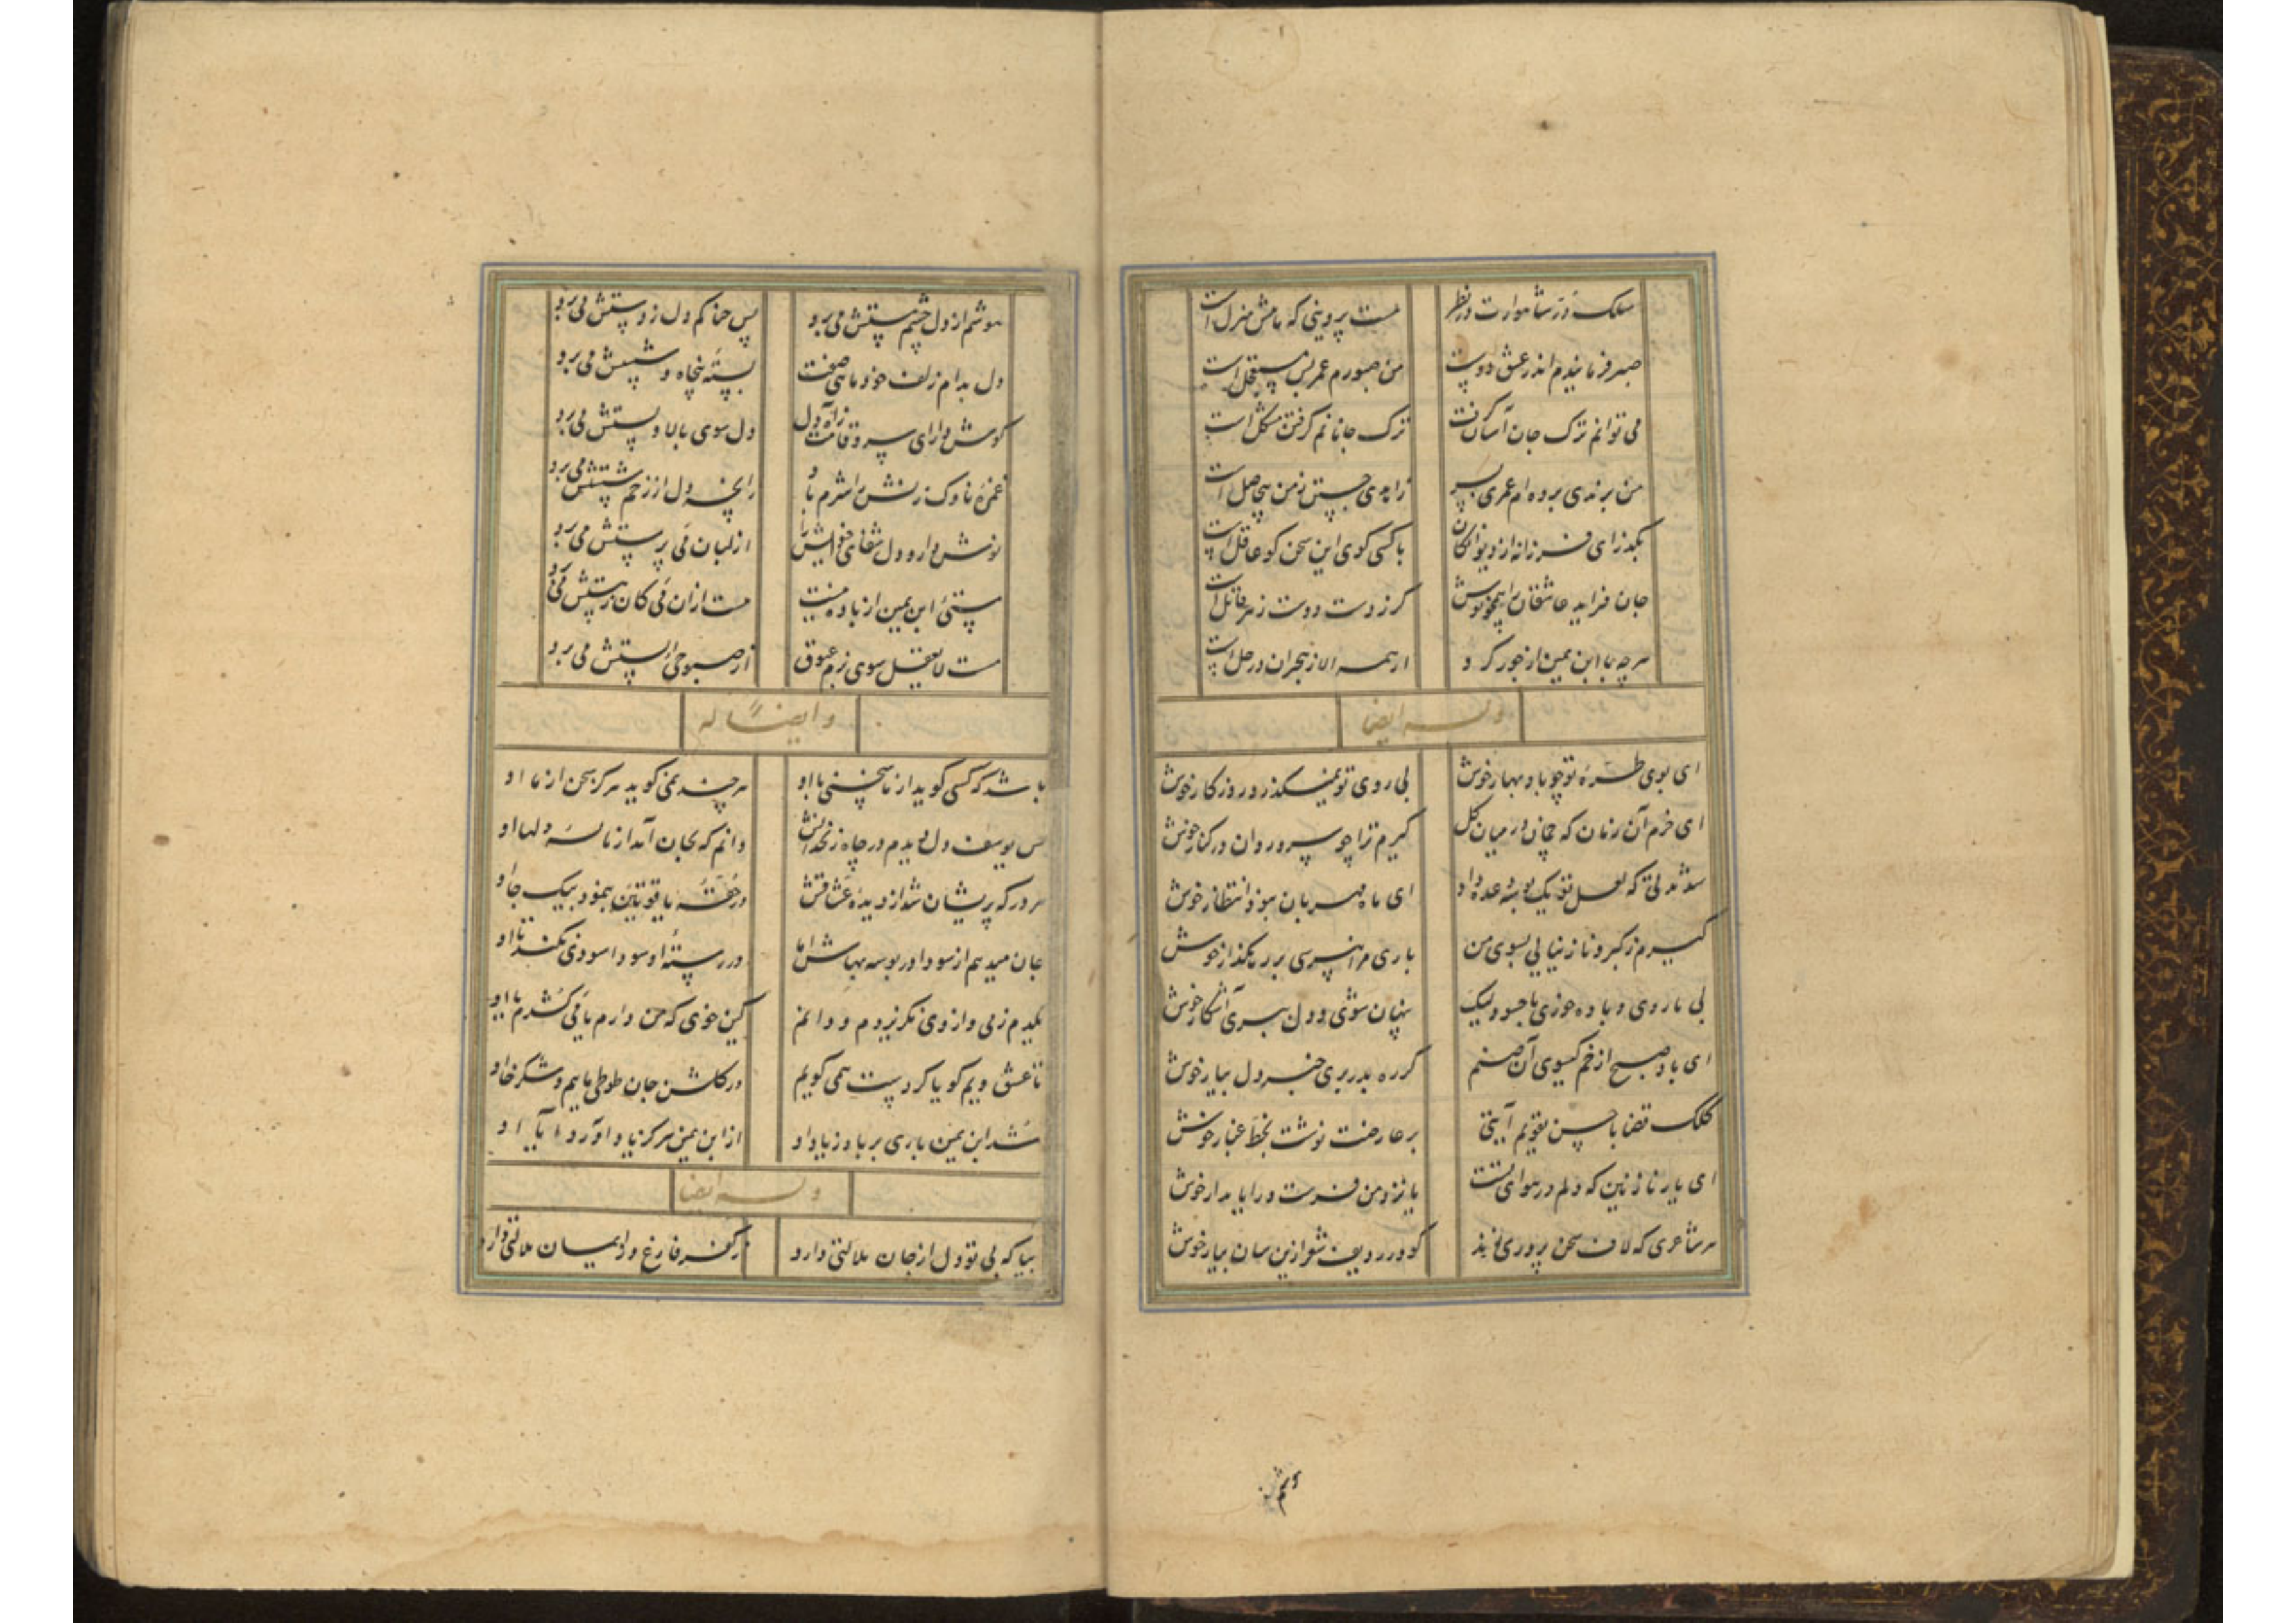 سلک در شاهوارت در نظر هست پروینی که ماهش منزل است
صبر فرمایندم اندر عشق دوست من صبورم عمر بس مستعجل است
می توانم ترک جان آسان گرفت ترک جانانم گرفتن مشکل است
من برندی برده ام عمری بسر زاهدی جستن ز من بیحاصل است
بگذر ای فرزانه از دیوانگان با کسی گوی این سخن کو عاقل است
جان فزاید عاشقان را همچو نوش گر ز دست دوست زهر قاتل است
هر چه با ابن یمین از جور کرد از همه الا ز هجران در حل است
وله ایضا
ای بوی طره تو چو باد بهار خوش بی روی تو نمیگذرد روزگار خوش
ای خرم آن زمان که چمان در میان گل گیرم ترا چو سرو روان در کنار خوش
شد مدتی که لعل تو یک بوسه وعده داد ای ماه مهربان نبود انتظار خوش
گیرم ز کبر و ناز نیایی بسوی من باری مرا نپرسی بر رهگذار خوش
بی ما روی و باده خوری با حسود لیک پنهان شوی و دل ببری آشکار خوش
ای باد صبح از خم گیسوی آن صنم گر ره بدر بری خبر دل بیار خوش
کلک قضا باحسن تقویم آیتی بر عارضت نوشت بخط غبار خوش
ای یار نازنین که دلم در هوای تست یا نزد من فرست و را یا بدار خوش
هر شاعری که لاف سخن پروری زند کو در ردیف شعر ازین سان بیار خوش
هوشم
هوشم از دل چشم مستش می برد پس چنا کم دل ز دستش می برد
دل بدام زلف خود ماهی صفت بسته پنجاه و شستش می برد
گوش دار ای سرو قامت زآه دل دل سوی بالا و پستش می برد
غمزه ناوک زنش را شرم باد زانچه دل از زخم شستش می برد
نوش دارو دل شفای خویش را از لبان می پرستش می برد
مستی ابن یمین از باده نیست مست از آن می کان ز هستش می برد
مست لایعقل سوی بزم غبوق از صبوحی الستش می برد
وایضا له
باشد که کسی گوید از ما سخنی با او هر چند نمی گوید هرگز سخن از ما او
بس یوسف دل دیدم در چاه زنخدانش دانم که بجان آمد از ناله دلها او
هر در که پریشان شد از دیده عشاقش در حقه یاقوتین بنمود بیک جا او
جان میدهم از سودا در بوسه بهاش اما در رسته او سودا سودی نکند با او
بگیدم زمی و از وی نگزیردم و دانم کین خوی که من دارم با می کشدم با او
تا عشق ویم گویا کردست همی گویم در گلشن جان طوطی ماییم و شکرخا او
شد ابن یمین باری بر باد ز یاد او از ابن یمین هرگز یاد آورد آیا او
وله ایضا
بیا که بی تو دل از جان ملالتی دارد ز کفر فارغ و از ایمان ملالتی دارد